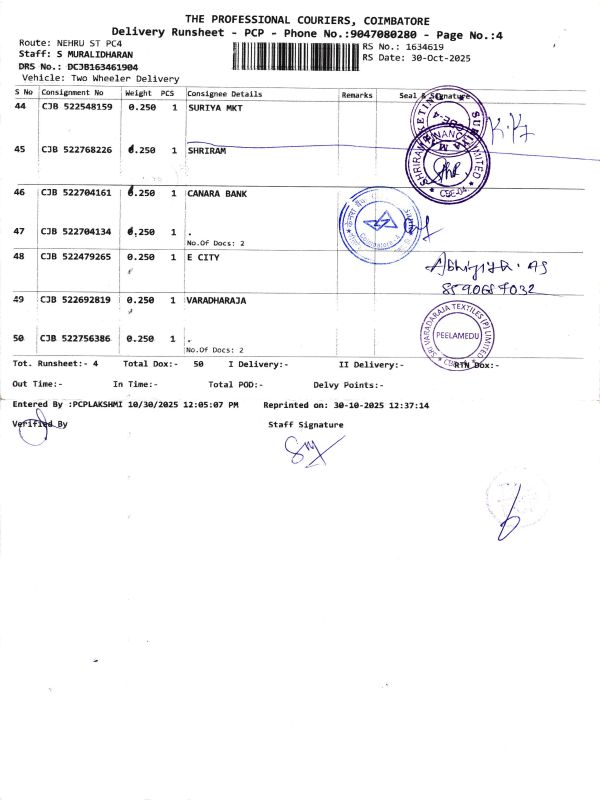 THE PROFESSIONAL COURIERS, COIMBATORE
Delivery Runsheet - PCP - Phone No.:9047080280 - Page No.:4
Route: NEHRU ST PC4
RS No.: 1634619
Staff: S MURALIDHARAN
RS Date: 30-Oct-2025
DRS No.: DCJB163461904
Vehicle: Two Wheeler Delivery
S No Consignment No Weight PCS Consignee Details Remarks Seal & Signature
44 CJB 522548159 0.250 1 SURIYA MKT
45 CJB 522768226 0.250 1 SHRIRAM
46 CJB 522704161 0.250 1 CANARA BANK
47 CJB 522704134 0.250 1 .
No.Of Docs: 2
48 CJB 522479265 0.250 1 E CITY
49 CJB 522692819 0.250 1 VARADHARAJA
50 CJB 522756386 0.250 1 .
No.Of Docs: 2
8590687032
SRI VARADARAJA TEXTILES (P) LIMITED
PEELAMEDU
Tot. Runsheet:- 4 Total Dox:- 50 I Delivery:- II Delivery:- RTN Dox:-
Out Time:- In Time:- Total POD:- Delvy Points:-
Entered By :PCPLAKSHMI 10/30/2025 12:05:07 PM Reprinted on: 30-10-2025 12:37:14
Verified By Staff Signature